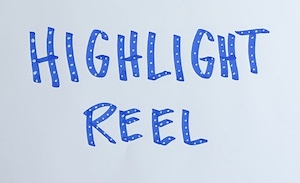 HIGHLIGHT
REEL